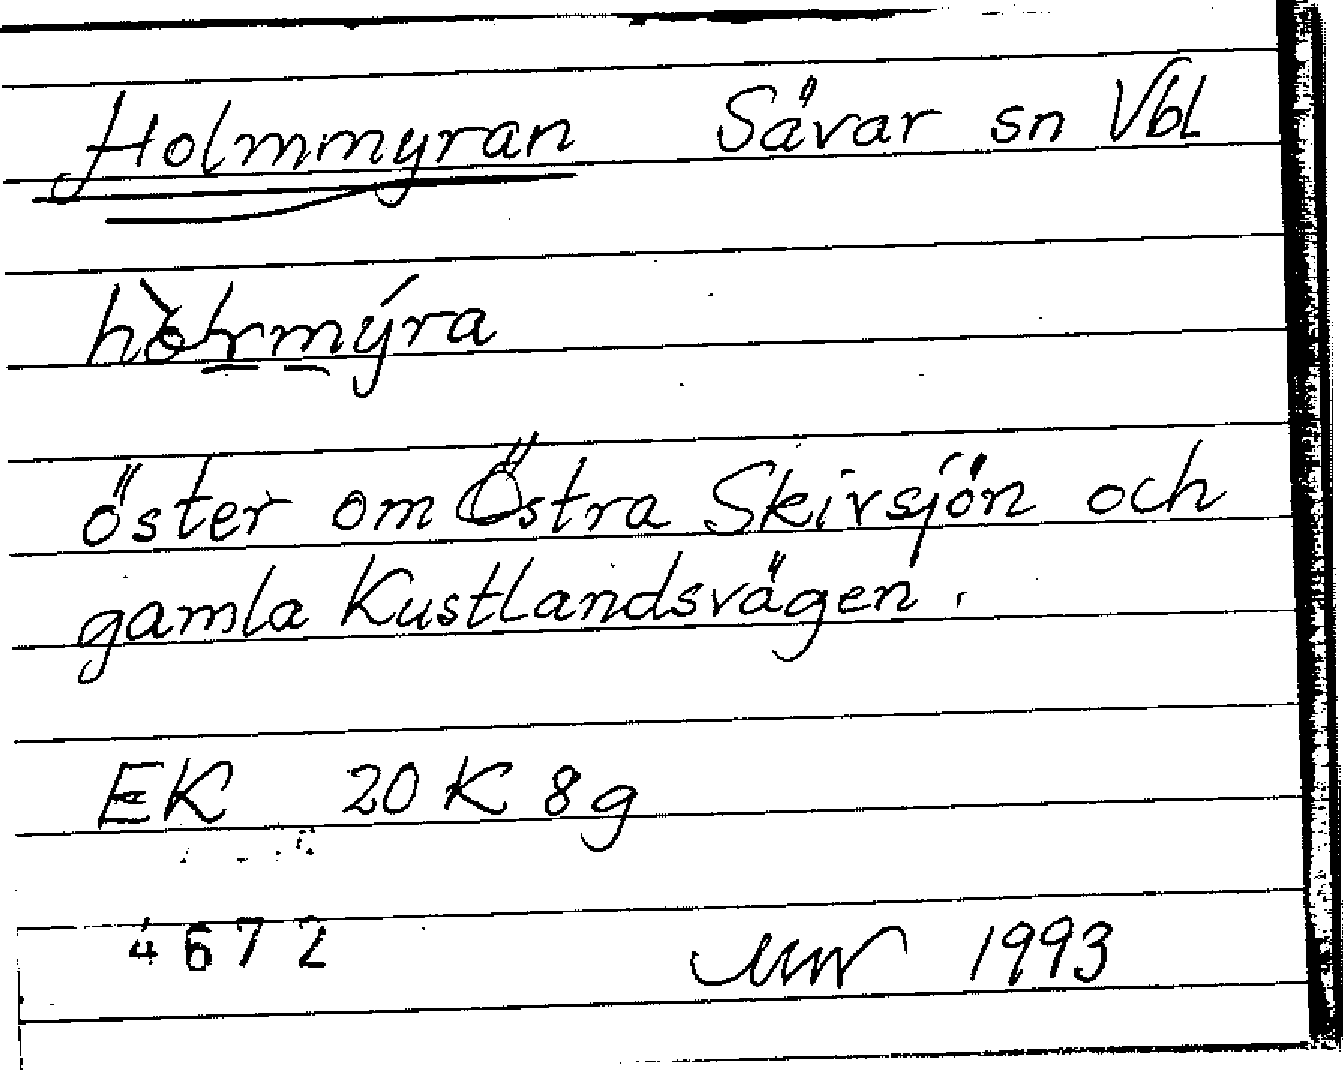 Holmmyran Sävar sn Vbl
öster om Östra Skivsjön och
gamla Kustlandsvägen.
EK 20 K 8g
4672 1993